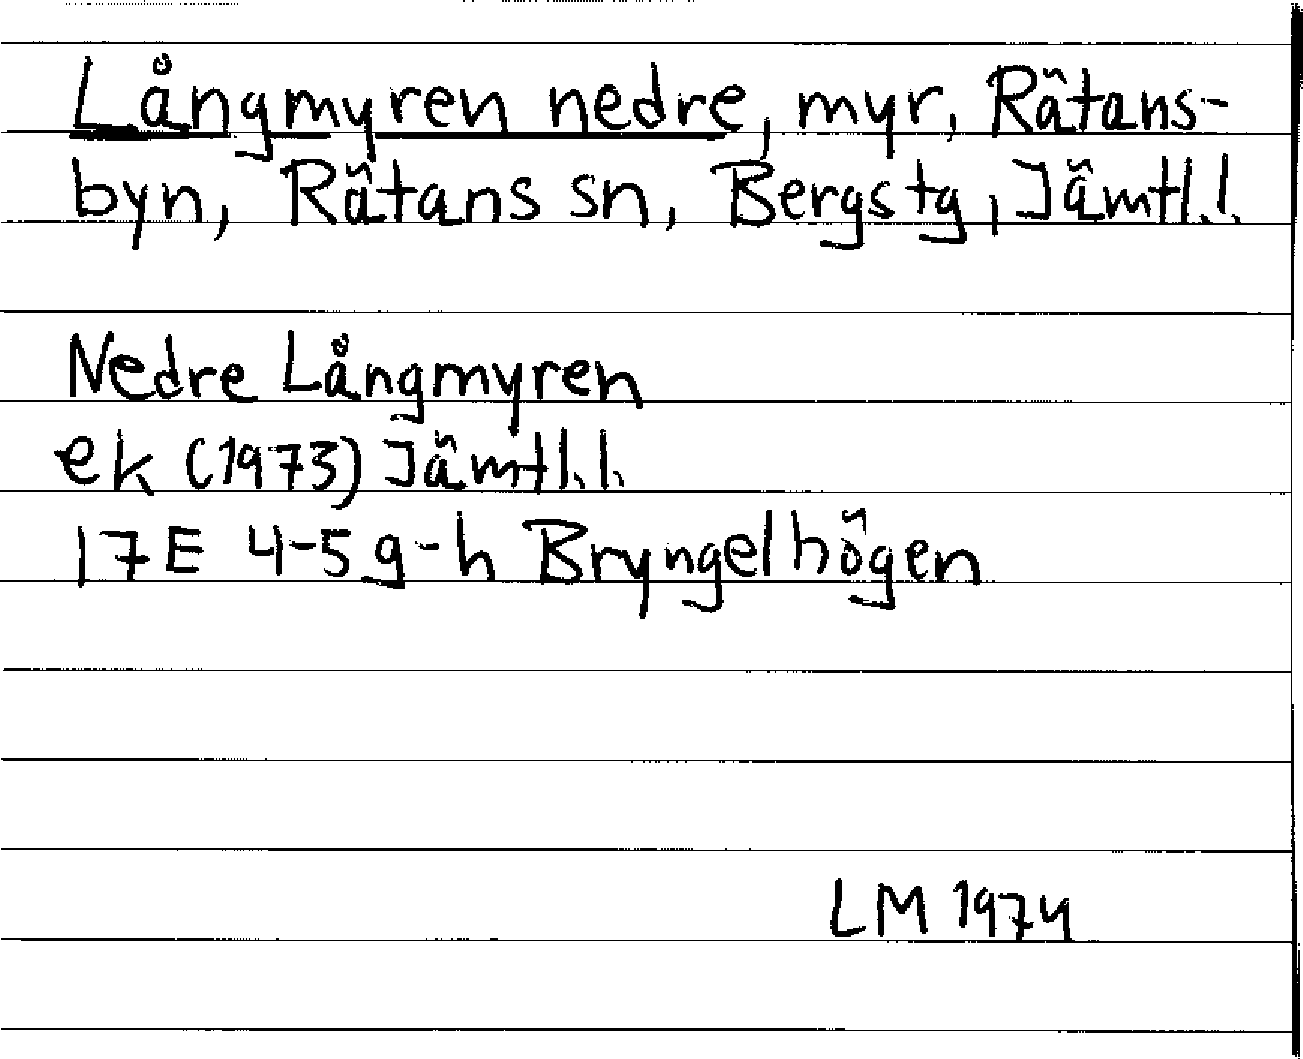 Långmyren nedre, myr, Rätans-
byn, Rätans sn, Bergs tg, Jämtl.l.
Nedre Långmyren
ek (1973) Jämtl.l.
17E 4-5 g-h Bryngelhögen
LM 1974